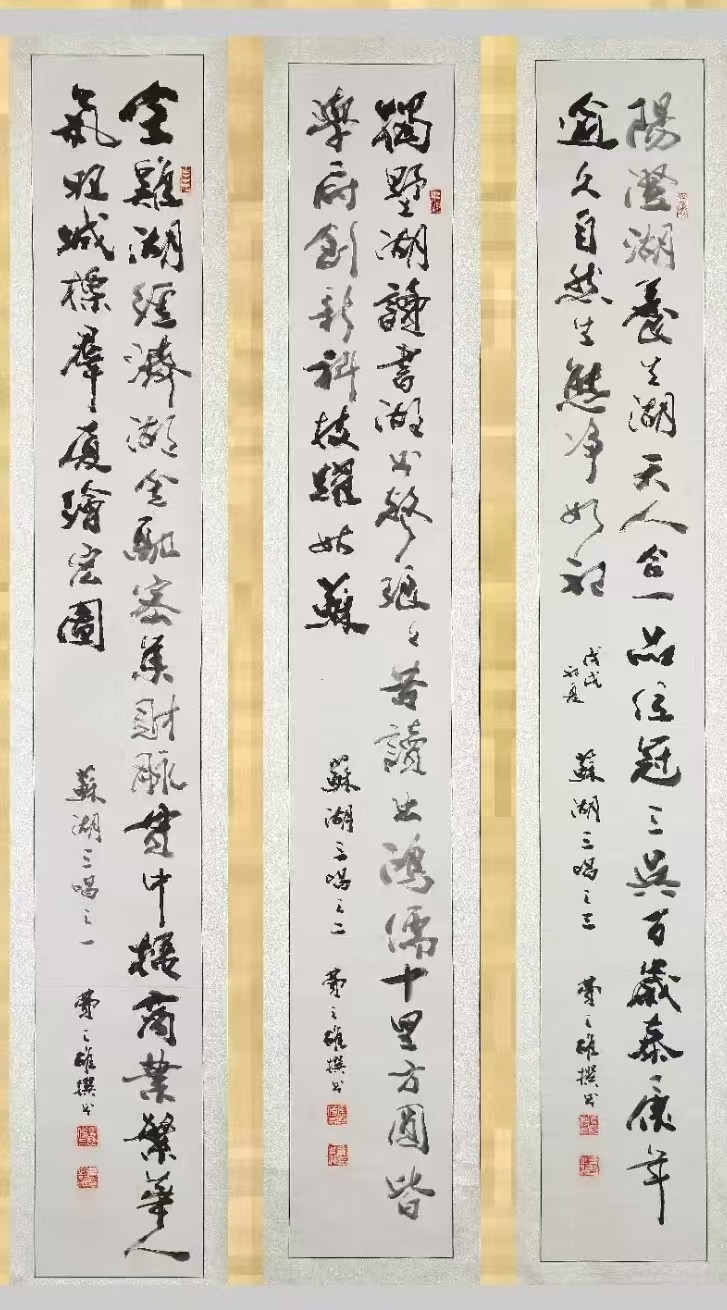 金雞湖經濟湖金融密集財脈貫中樞商業繁華人
氣旺城標羣厦繪宏圖
蘇湖三唱之一 費之雄撰书
獨墅湖讀書湖书聲琅々昔讀出鴻儒十里方圓皆
學府創新科技躍姑蘇
蘇湖三唱之二 費之雄撰书
陽澄湖養生湖天人合一品位冠三吳百歲泰康年
逾久自然生態净如初
戊戌
初夏
蘇湖三唱之三 費之雄撰书